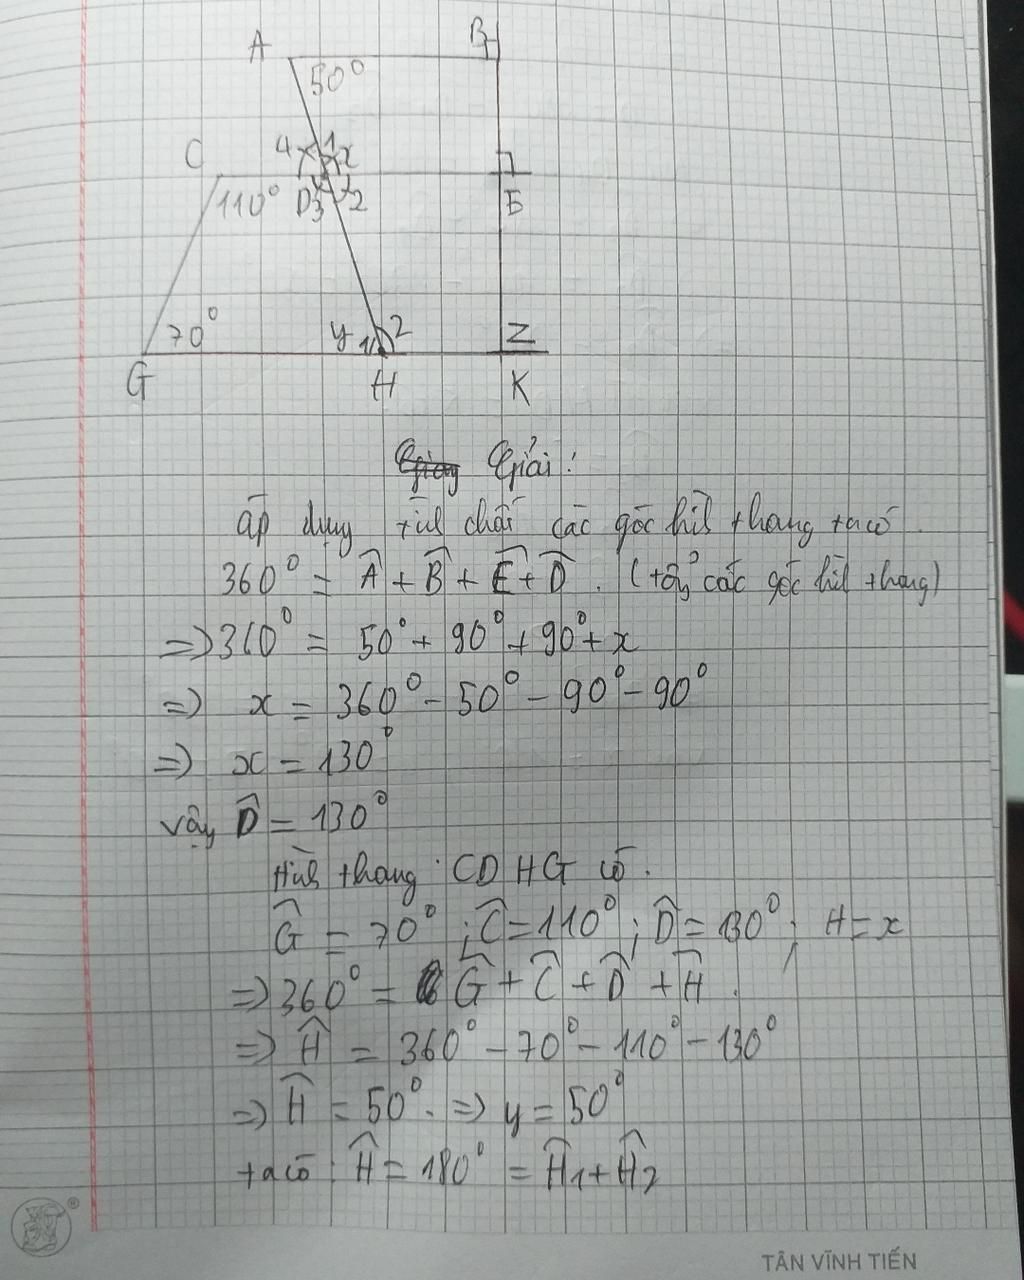 A B
50°
4 1 x
C
110° D3 2 E
70° y 1 2 Z
G H K
Giải:
áp dụng tính chất các góc hình thang ta có.
360° = Â + B̂ + Ê + D̂. (tổng các góc hình thang)
=> 360° = 50° + 90° + 90° + x
=> x = 360° - 50° - 90° - 90°
=> x = 130°
vậy D̂ = 130°
Hình thang CDHG có.
Ĝ = 70°; Ĉ = 110°; D̂ = 130°; H = x
=> 360° = Ĝ + Ĉ + D̂ + Ĥ.
=> Ĥ = 360° - 70° - 110° - 130°
=> Ĥ = 50°. => y = 50°
ta có: Ĥ = 180° = Ĥ1 + Ĥ2
TÂN VĨNH TIẾN